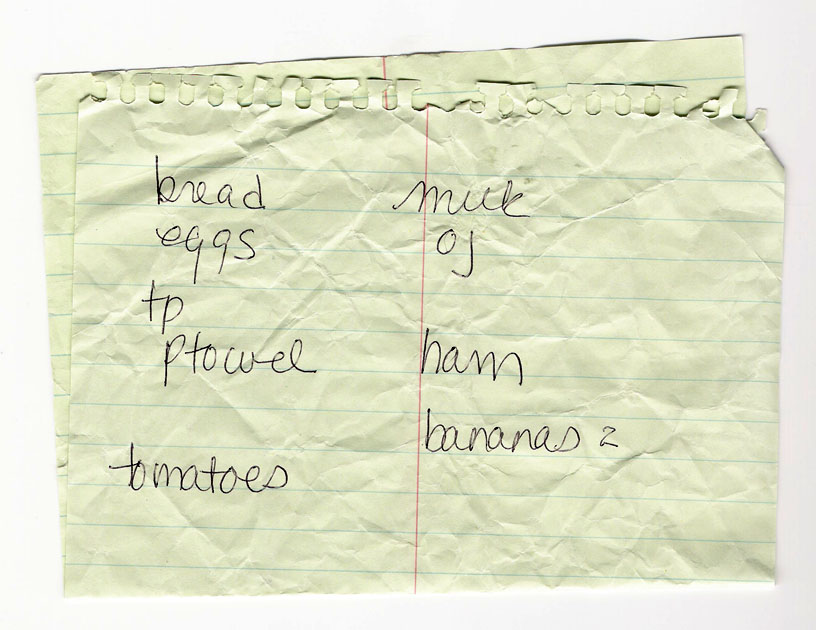 bread
eggs
tp
ptowel
tomatoes
milk
oj
ham
bananas 2